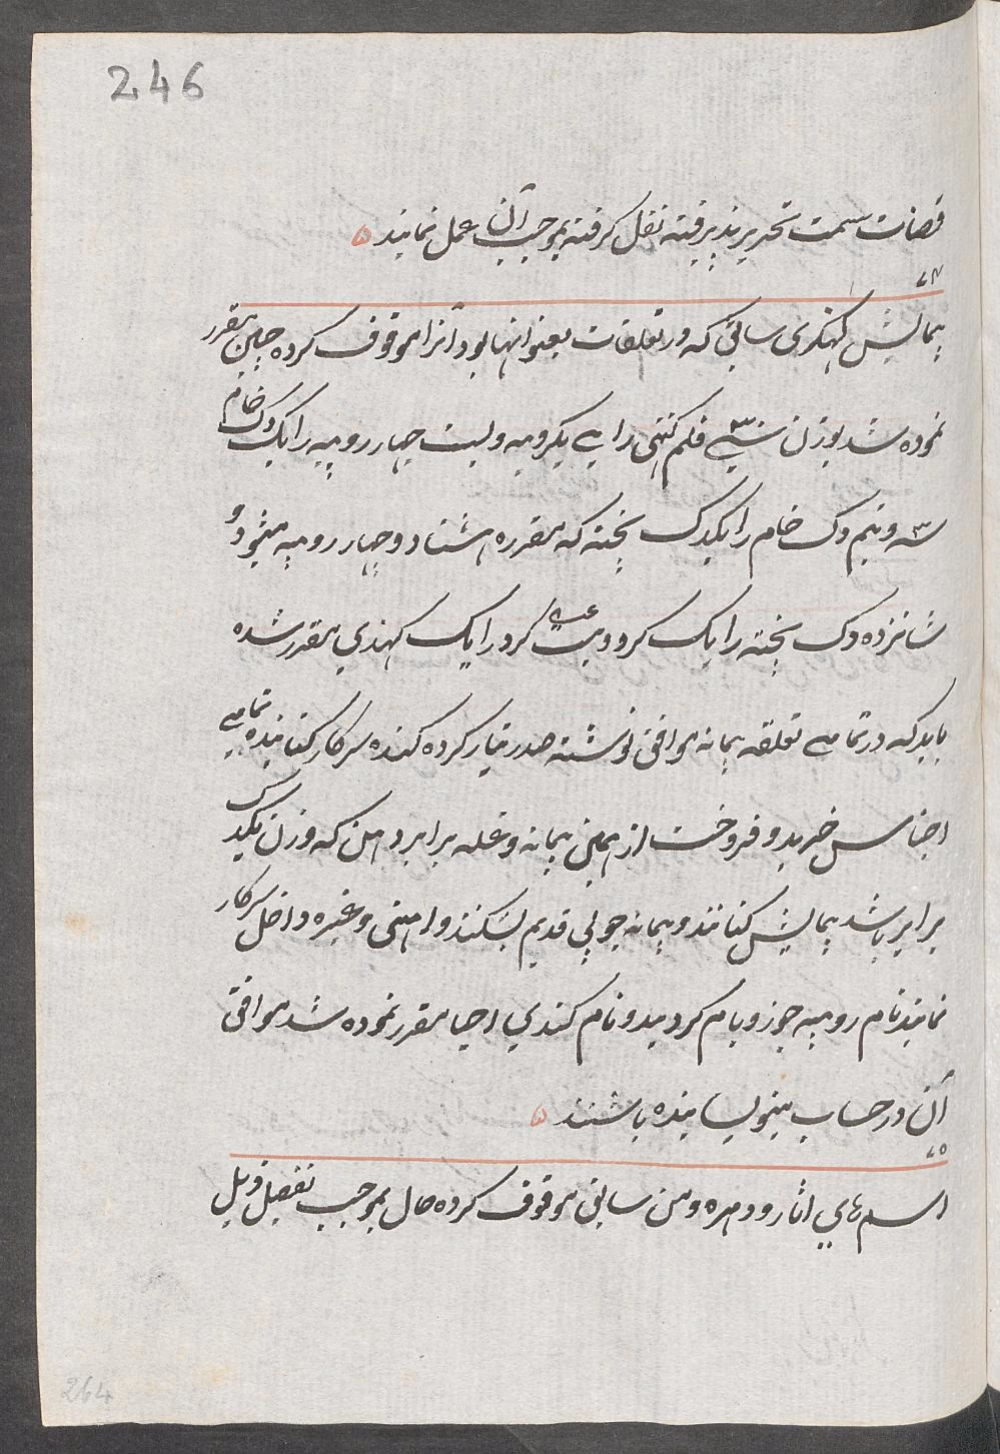 246
قضات سمت تحریر پذیرفته نقل گرفته بموجب آن عمل نمایند ۵
۷۴
پیمایش کهنکری سابق که در تعلقات بعنوانها بود آنرا موقوف کرده چنین مقرر
نموده شد بوزن سی قلم کنتی رایی یکروپیه و بیست چهار روپیه را یک دک خام
سه و نیم دک خام را یکدک پخته که مقرره هشتاد و چهار روپیه میشود و
شانزده دک پخته را یک کرو و بیست کرو را یک کهندی مقرر شده
باید که در تمامی تعلقه پیمانه موافق نوشته صدر تیار کرده کنده سرکار کنانیده تمامی
اجناس خرید و فروخت از همین پیمانه و غله برابر دهن که وزن یکدک
برابر باشد پیمایش کنانند و پیمانه چوبی قدیم بشکنند و اهنی و غیره داخل سرکار
نمایند نام روپیه جوز و بام کردید و نام کندی احیا مقرر نموده شد موافق
آن در حساب مینویسانیده باشند ۵
۷۵
اسم‌های اثار و دهره و من سابق موقوف کرده حال بموجب تفصیل ذیل
264